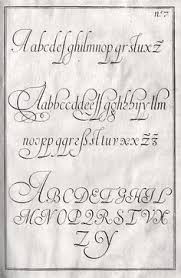 nº. 7
A abcdefghilmnopqrsſtuxz̃
Aabbccddeeffgghhijyllm
noopp qqreßſtturvxxz̃z̃
ABCDEFGHIL
MNOPQRSTVX
ZY